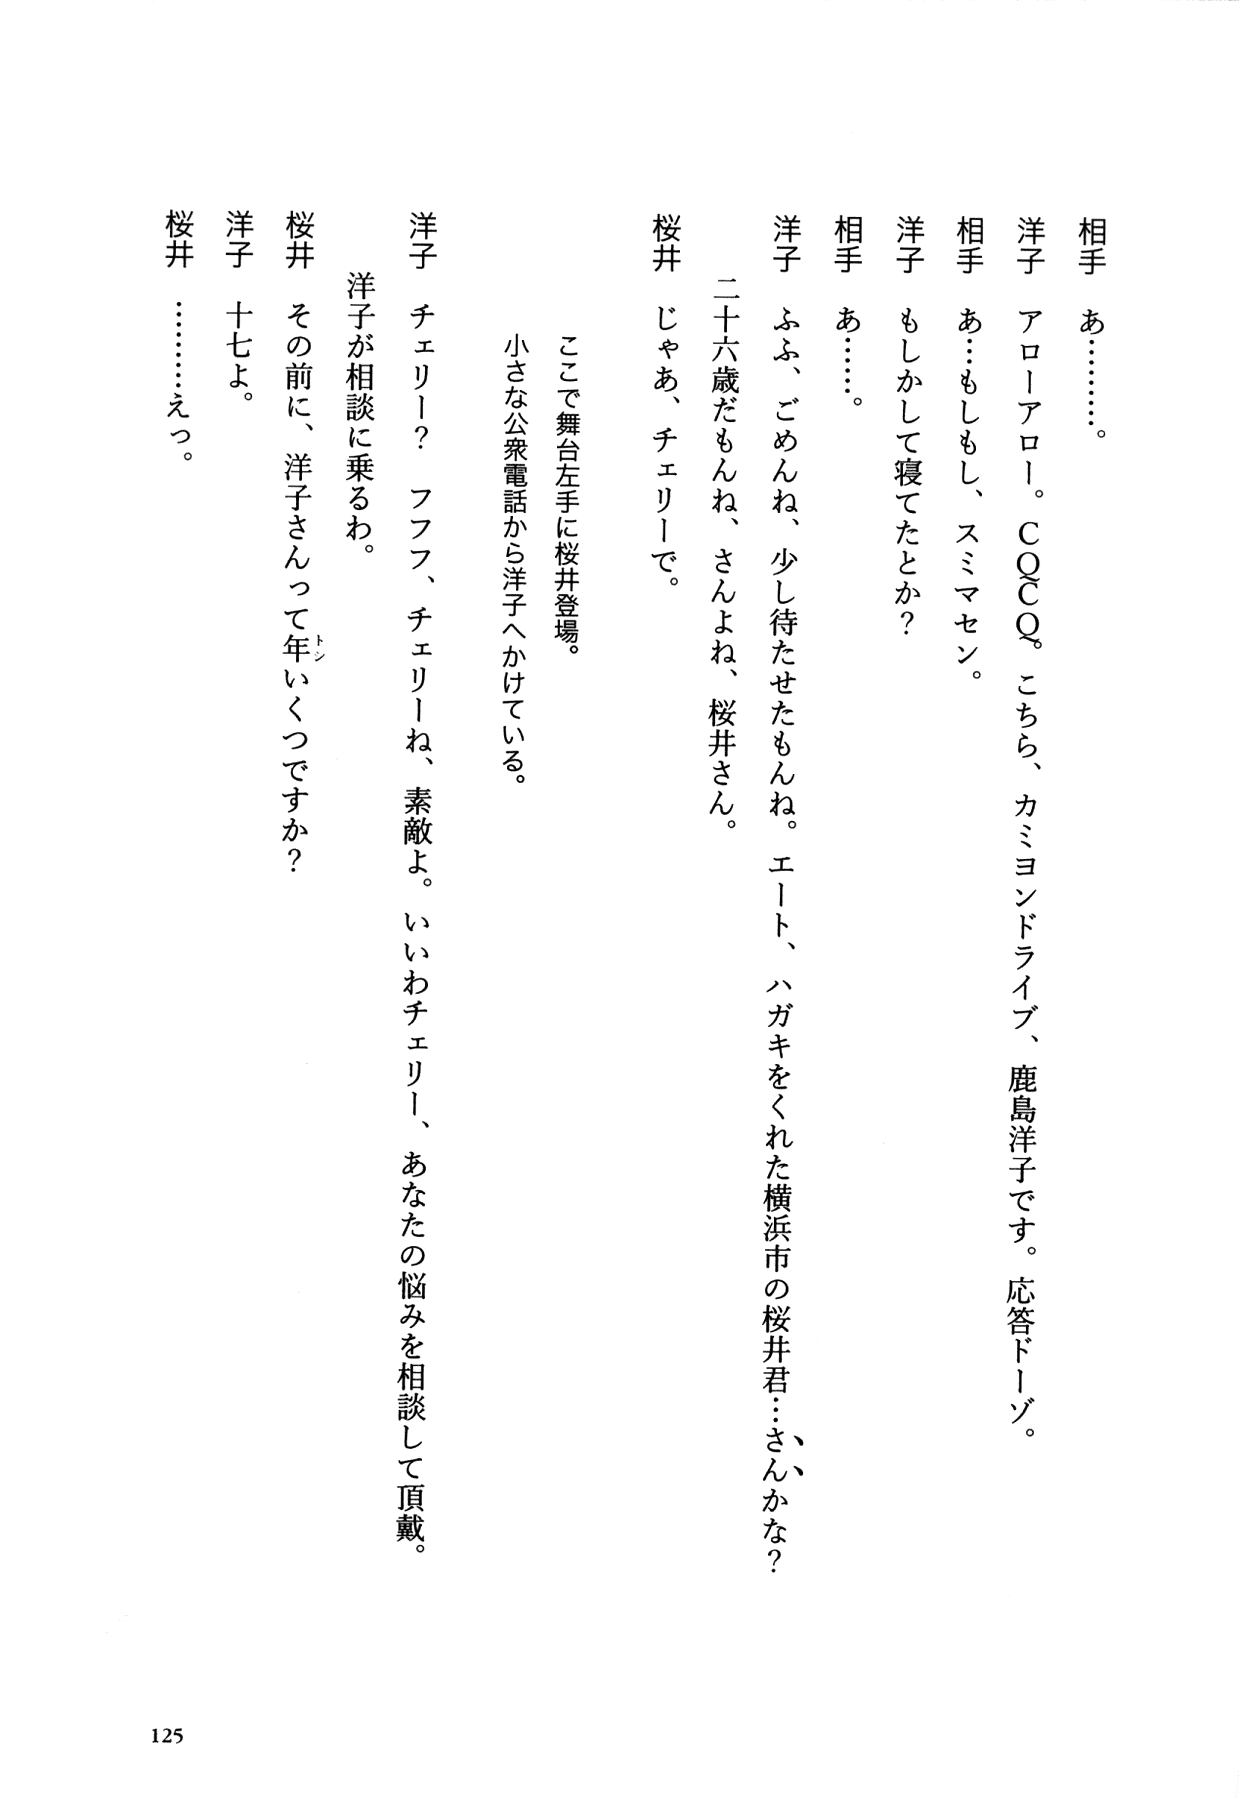 相手　あ………。
洋子　アローアロー。CQCQ。こちら、カミヨンドライブ、鹿島洋子です。応答ドーゾ。
相手　あ…もしもし、スミマセン。
洋子　もしかして寝てたとか？
相手　あ……。
洋子　ふふ、ごめんね、少し待たせたもんね。エート、ハガキをくれた横浜市の桜井君…さんかな？
二十六歳だもんね、さんよね、桜井さん。
桜井　じゃあ、チェリーで。
ここで舞台左手に桜井登場。
小さな公衆電話から洋子へかけている。
洋子　チェリー？　フフフ、チェリーね、素敵よ。いいわチェリー、あなたの悩みを相談して頂戴。
洋子が相談に乗るわ。
桜井　その前に、洋子さんって年トシいくつですか？
洋子　十七よ。
桜井　………えっ。
125